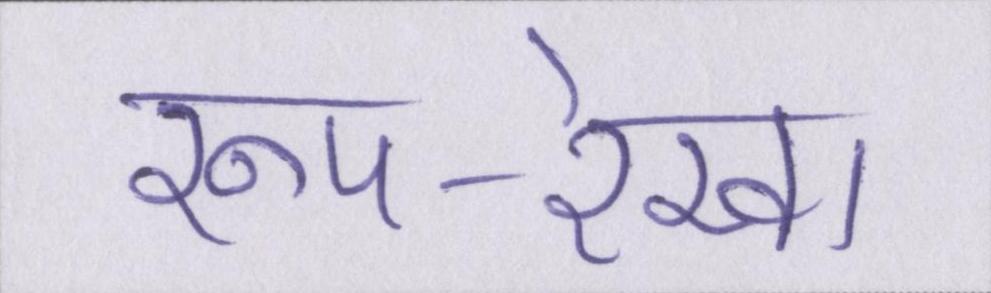 रूप-रेखा